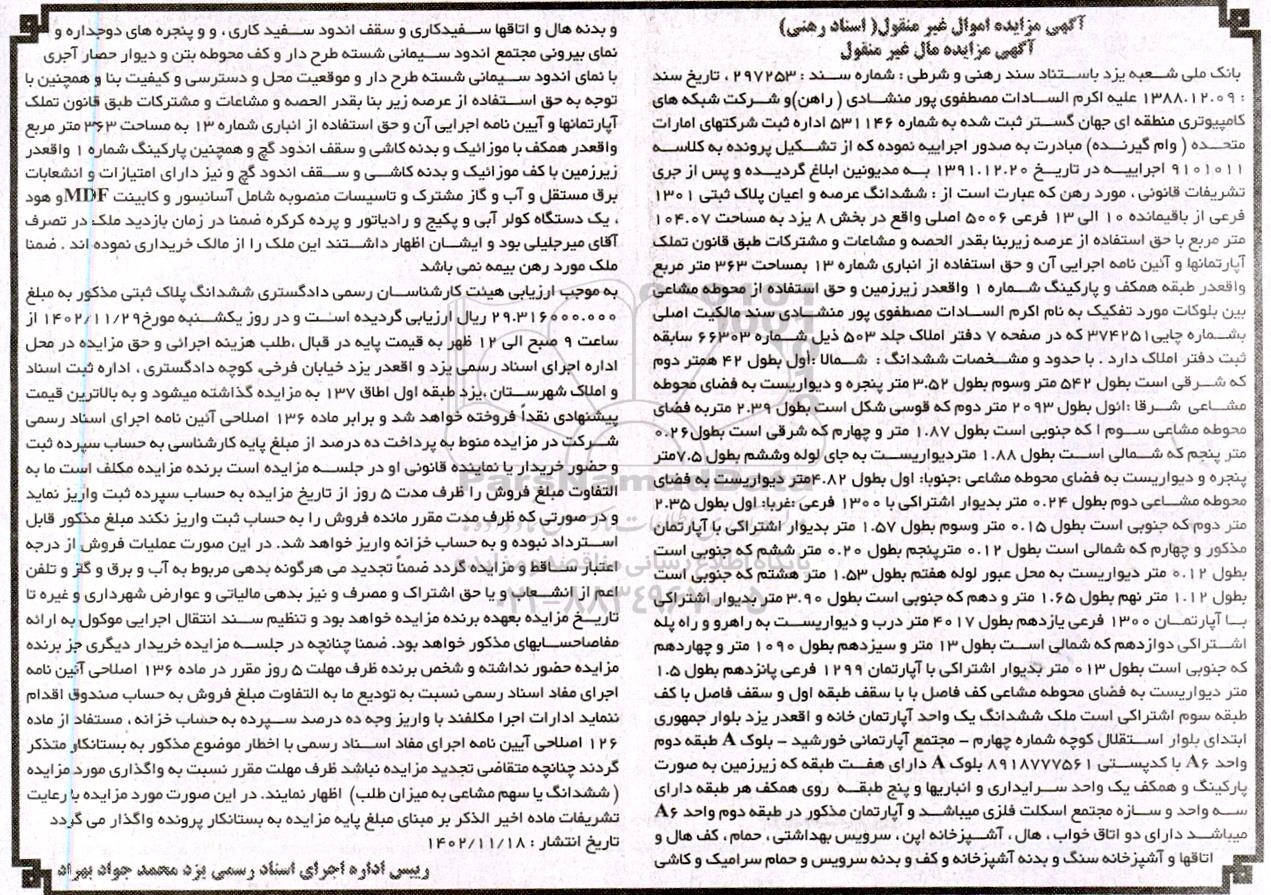 آگهی مزایده اموال غیر منقول( اسناد رهنی)
آگهی مزایده مال غیر منقول
بانک ملی شعبه یزد باستناد سند رهنی و شرطی : شماره سند : ۲۹۷۲۵۳ ، تاریخ سند
: ۱۳۸۸.۱۲.۰۹ علیه اکرم السادات مصطفوی پور منشادی ( راهن)و شرکت شبکه های
کامپیوتری منطقه ای جهان گستر ثبت شده به شماره ۵۳۱۱۴۶ اداره ثبت شرکتهای امارات
متحده ( وام گیرنده) مبادرت به صدور اجراییه نموده که از تشکیل پرونده به کلاسه
۹۱۰۱۰۱۱ اجراییه در تاریخ ۱۳۹۱.۱۲.۲۰ به مدیونین ابلاغ گردیده و پس از جری
تشریفات قانونی ، مورد رهن که عبارت است از : ششدانگ عرصه و اعیان پلاک ثبتی ۱۳۰۱
فرعی از باقیمانده ۱۰ الی ۱۳ فرعی ۵۰۰۶ اصلی واقع در بخش ۸ یزد به مساحت ۱۰۴.۰۷
متر مربع با حق استفاده از عرصه زیربنا بقدر الحصه و مشاعات و مشترکات طبق قانون تملک
آپارتمانها و آئین نامه اجرایی آن و حق استفاده از انباری شماره ۱۳ بمساحت ۳۶۳ متر مربع
واقعدر طبقه همکف و پارکینگ شماره ۱ واقعدر زیرزمین و حق استفاده از محوطه مشاعی
بین بلوکات مورد تفکیک به نام اکرم السادات مصطفوی پور منشادی سند مالکیت اصلی
بشماره چاپی۳۷۴۲۵۱ که در صفحه ۷ دفتر املاک جلد ۵۰۳ ذیل شماره ۶۶۳۰۳ سابقه
ثبت دفتر املاک دارد . با حدود و مشخصات ششدانگ : شمالا :أول بطول ۴۲ همتر دوم
که شرقی است بطول ۵۴۲ متر وسوم بطول ۳.۵۲ متر پنجره و دیواریست به فضای محوطه
مشاعی شرقا :ائول بطول ۲۰۹۳ متر دوم که قوسی شکل است بطول ۲.۳۹ متربه فضای
محوطه مشاعی سوم ا که جنوبی است بطول ۱.۸۷ متر و چهارم که شرقی است بطول۰.۲۶
متر پنجم که شمالی است بطول ۱.۸۸ متردیواریست به جای لوله وششم بطول ۷.۵متر
پنجره و دیواریست به فضای محوطه مشاعی :جنوبا: اول بطول ۴.۸۲متر دیواریست به فضای
محوطه مشاعی دوم بطول ۰.۲۴ متر بدیوار اشتراکی با ۱۳۰۰ فرعی :غربا: اول بطول ۲.۳۵
متر دوم که جنوبی است بطول ۰.۱۵ متر وسوم بطول ۱.۵۷ متر بدیوار اشتراکی با آپارتمان
مذکور و چهارم که شمالی است بطول ۰.۱۲ مترپنجم بطول ۰.۲۰ متر ششم که جنوبی است
بطول ۰.۱۲ متر دیواریست به محل عبور لوله هفتم بطول ۱.۵۳ متر هشتم که جنوبی است
بطول ۱.۱۲ متر نهم بطول ۱.۶۵ متر و دهم که جنوبی است بطول ۳.۹۰ متر بدیوار اشتراکی
با آپارتمان ۱۳۰۰ فرعی یازدهم بطول ۴۰۱۷ متر درب و دیواریست به راهرو و راه پله
اشتراکی دوازدهم که شمالی است بطول ۱۳ متر و سیزدهم بطول ۱۰۹۰ متر و چهاردهم
که جنوبی است بطول ۰۱۳ متر بدیوار اشتراکی با آپارتمان ۱۲۹۹ فرعی پانزدهم بطول ۱.۵
متر دیواریست به فضای محوطه مشاعی کف فاصل با با سقف طبقه اول و سقف فاصل با کف
طبقه سوم اشتراکی است ملک ششدانگ یک واحد آپارتمان خانه و اقعدر یزد بلوار جمهوری
ابتدای بلوار استقلال کوچه شماره چهارم - مجتمع آپارتمانی خورشید - بلوک A طبقه دوم
واحد A۶ با کدپستی ۸۹۱۸۷۷۷۵۶۱ بلوک A دارای هفت طبقه که زیرزمین به صورت
پارکینگ و همکف یک واحد سرایداری و انباریها و پنج طبقه روی همکف هر طبقه دارای
سه واحد و سازه مجتمع اسکلت فلزی میباشد و آپارتمان مذکور در طبقه دوم واحد A۶
میباشد دارای دو اتاق خواب ، هال ، آشپزخانه اپن ، سرویس بهداشتی ، حمام ، کف هال و
اتاقها و آشپزخانه سنگ و بدنه آشپزخانه و کف و بدنه سرویس و حمام سرامیک و کاشی
و بدنه هال و اتاقها سفیدکاری و سقف اندود سفید کاری ، و و پنجره های دوجداره و
نمای بیرونی مجتمع اندود سیمانی شسته طرح دار و کف محوطه بتن و دیوار حصار آجری
با نمای اندود سیمانی شسته طرح دار و موقعیت محل و دسترسی و کیفیت بنا و همچنین با
توجه به حق استفاده از عرصه زیر بنا بقدر الحصه و مشاعات و مشترکات طبق قانون تملک
آپارتمانها و آیین نامه اجرایی آن و حق استفاده از انباری شماره ۱۳ به مساحت ۳۶۳ متر مربع
واقعدر همکف با موزائیک و بدنه کاشی و سقف اندود گچ و همچنین پارکینگ شماره ۱ واقعدر
زیرزمین با کف موزائیک و بدنه کاشی و سقف اندود گچ و نیز دارای امتیازات و انشعابات
برق مستقل و آب و گاز مشترک و تاسیسات منصوبه شامل آسانسور و کابینت MDFو هود
، یک دستگاه کولر آبی و پکیج و رادیاتور و پرده کرکره ضمنا در زمان بازدید ملک در تصرف
آقای میرجلیلی بود و ایشان اظهار داشتند این ملک را از مالک خریداری نموده اند . ضمنا
ملک مورد رهن بیمه نمی باشد
به موجب ارزیابی هیئت کارشناسان رسمی دادگستری ششدانگ پلاک ثبتی مذکور به مبلغ
۲۹.۳۱۶۰۰۰.۰۰۰ ریال ارزیابی گردیده است و در روز یکشنبه مورخ۱۴۰۲/۱۱/۲۹ از
ساعت ۹ صبح الی ۱۲ ظهر به قیمت پایه در قبال ،طلب هزینه اجرائی و حق مزایده در محل
اداره اجرای اسناد رسمی یزد و اقعدر یزد خیابان فرخی، کوچه دادگستری ، اداره ثبت اسناد
و املاک شهرستان ،یزد طبقه اول اطاق ۱۳۷ به مزایده گذاشته میشود و به بالاترین قیمت
پیشنهادی نقداً فروخته خواهد شد و برابر ماده ۱۳۶ اصلاحی آئین نامه اجرای اسناد رسمی
شرکت در مزایده منوط به پرداخت ده درصد از مبلغ پایه کارشناسی به حساب سپرده ثبت
و حضور خریدار یا نماینده قانونی او در جلسه مزایده است برنده مزایده مکلف است ما به
التفاوت مبلغ فروش را ظرف مدت ۵ روز از تاریخ مزایده به حساب سپرده ثبت واریز نماید
و در صورتی که ظرف مدت مقرر مانده فروش را به حساب ثبت واریز نکند مبلغ مذکور قابل
استرداد نبوده و به حساب خزانه واریز خواهد شد. در این صورت عملیات فروش از درجه
اعتبار ساقط و مزایده گردد ضمناً تجدید می هرگونه بدهی مربوط به آب و برق و گاز و تلفن
اعم از انشعاب و یا حق اشتراک و مصرف و نیز بدهی مالیاتی و عوارض شهرداری و غیره تا
تاریخ مزایده بعهده برنده مزایده خواهد بود و تنظیم سند انتقال اجرایی موکول به ارائه
مفاصاحسابهای مذکور خواهد بود. ضمنا چنانچه در جلسه مزایده خریدار دیگری جز برنده
مزایده حضور نداشته و شخص برنده ظرف مهلت ۵ روز مقرر در ماده ۱۳۶ اصلاحی آئین نامه
اجرای مفاد اسناد رسمی نسبت به تودیع ما به التفاوت مبلغ فروش به حساب صندوق اقدام
ننماید ادارات اجرا مکلفند با واریز وجه ده درصد سپرده به حساب خزانه ، مستفاد از ماده
۱۲۶ اصلاحی آیین نامه اجرای مفاد اسناد رسمی با اخطار موضوع مذکور به بستانکار متذکر
گردند چنانچه متقاضی تجدید مزایده نباشد ظرف مهلت مقرر نسبت به واگذاری مورد مزایده
( ششدانگ یا سهم مشاعی به میزان طلب) اظهار نمایند. در این صورت مورد مزایده با رعایت
تشریفات ماده اخیر الذکر بر مبنای مبلغ پایه مزایده به بستانکار پرونده واگذار می گردد
تاریخ انتشار : ۱۴۰۲/۱۱/۱۸
رییس اداره اجرای اسناد رسمی یزد محمد جواد بهراد
ParsNamadData
پایگاه اطلاع رسانی مناقصه و مزایده
۰۲۱-۸۸۳۴۹۶۷۰-۵